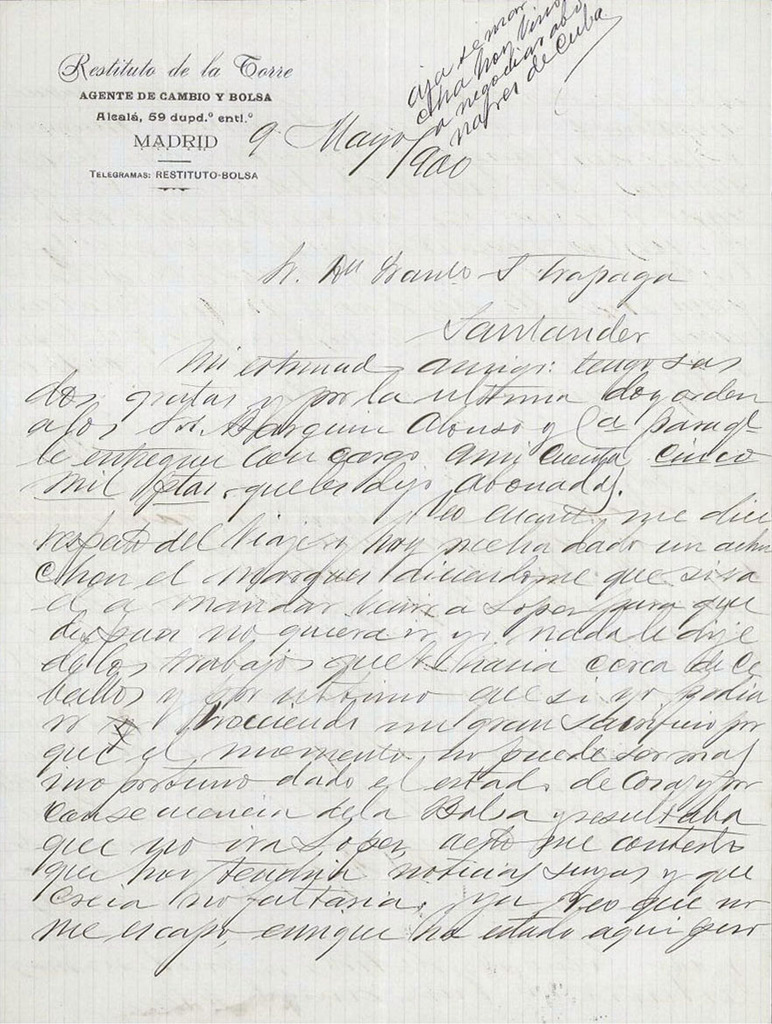 Restituto de la Torre
AGENTE DE CAMBIO Y BOLSA
Alcalá, 59 dupd.º entl.º
MADRID
TELEGRAMAS: RESTITUTO-BOLSA
9 Mayo 900
se mar
cha hoy vino
a negociar abo
nares de Cuba
Sr. Dn Trapaga
Santander
Mi estimad amigo: tengo sus
dos gratas y por la ultima doy orden
a los Sr. Alonso y Ca para q
le entreguen con cargo a mi cuenta cinco
mil ptas. que les dejo abonadas.
En cuanto me dice
respecto del viaje hoy me ha dado un
el Marques diciendome que
el a mandar a Lopez para que
despues no quiera ir y nada le dije
de los trabajos que hacia cerca de Ce
ballos y por ultimo que si yo podia
ir haciendo un gran sacrificio por
que el momento no puede ser mas
inoportuno dado el estado de cosas y por
consecuencia de la Bolsa y resultaba
que no ira Lopez, a esto me contesto
que hoy tendria noticias suyas y que
creia no faltaria. ya veo que no
me escapo, enrique ha estado aqui pero